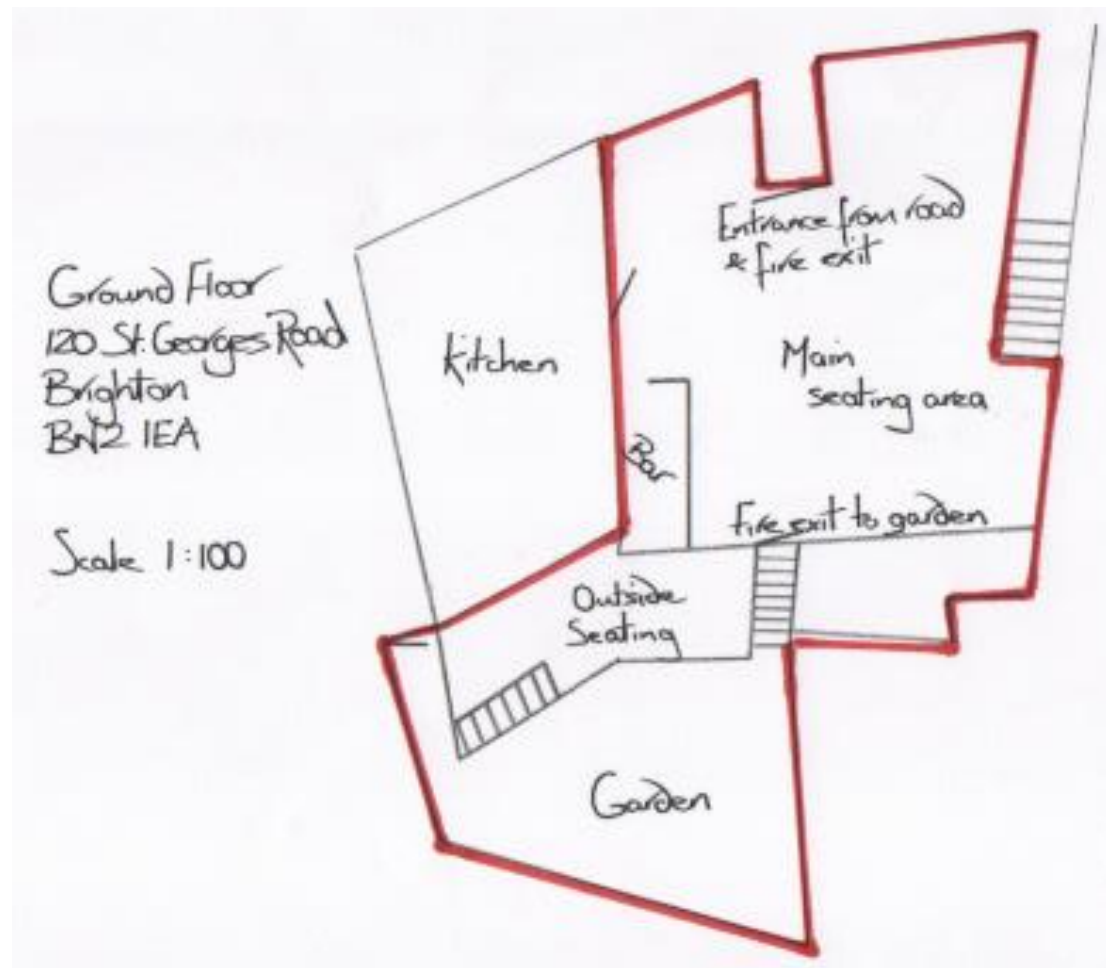 Ground Floor
120 St. Georges Road
Brighton
BN2 1EA
Scale 1:100
Kitchen
Entrance from road
& fire exit
Main
seating area
Bar
Fire exit to garden
Outside
Seating
Garden